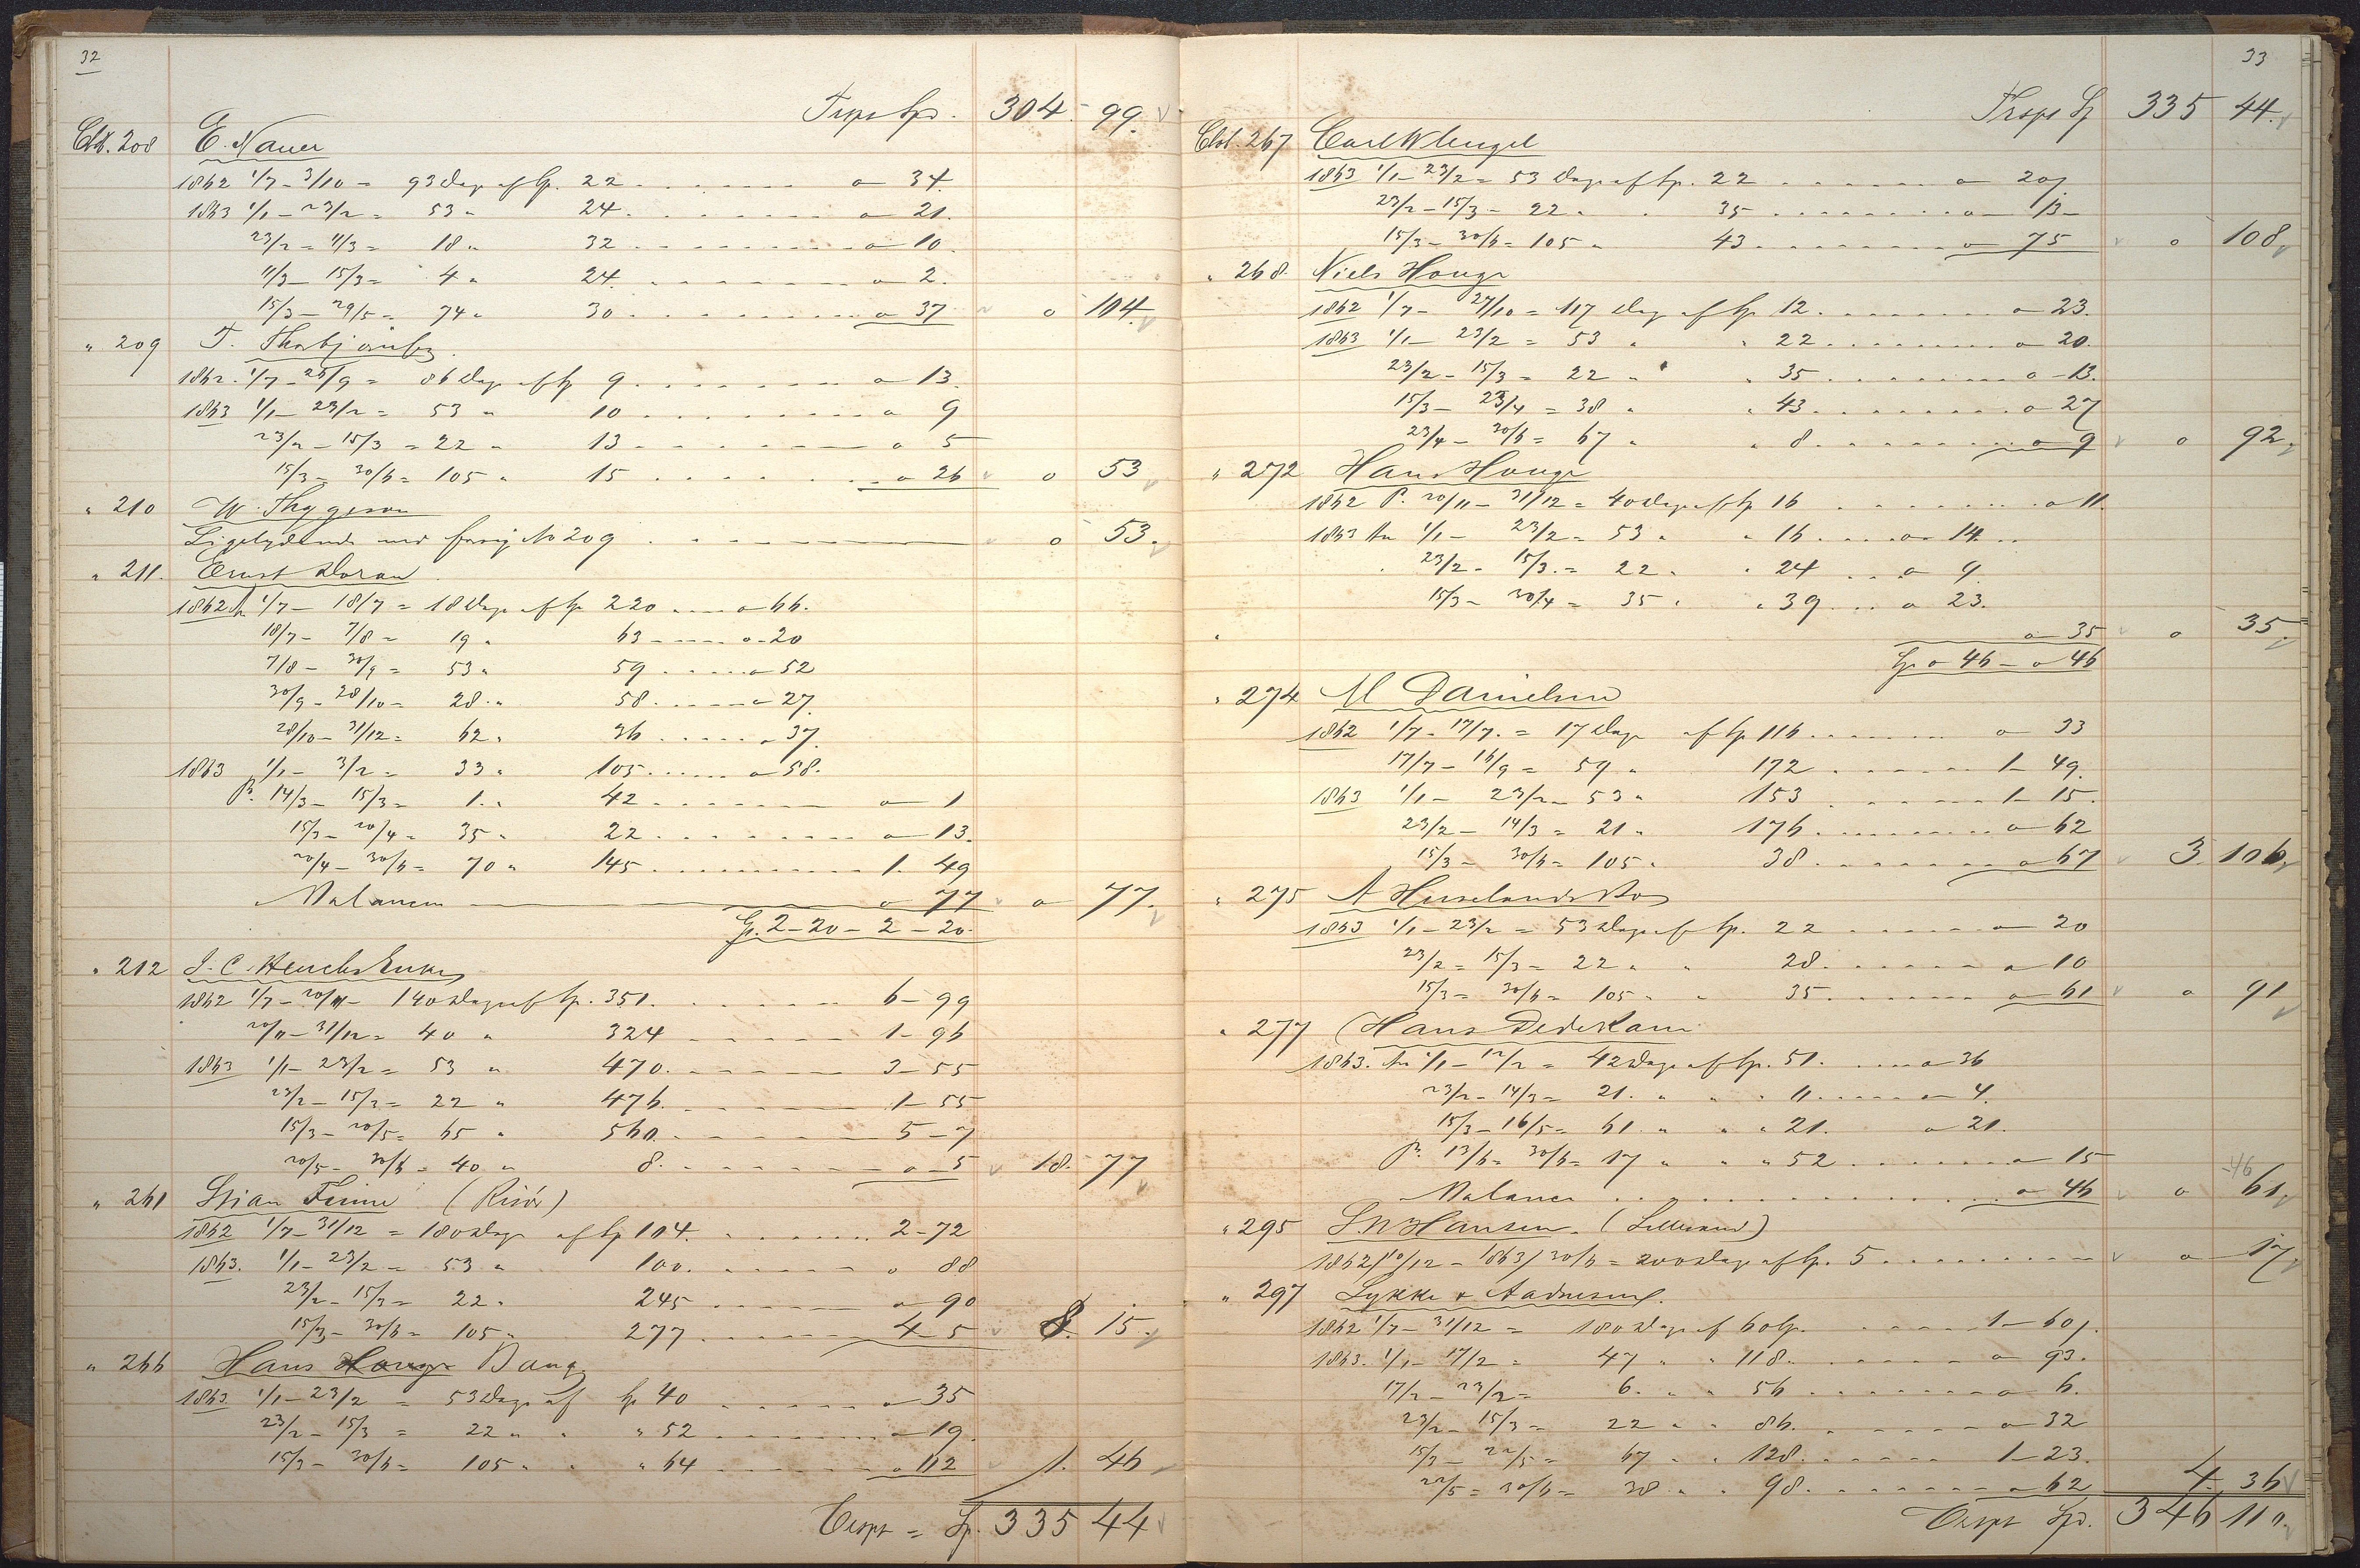 32
Trspt Spd. 304 - 99.
Cto. 208 E. Nauer
1862 1/7 - 3/10 = 93 Dage af Sp. 22 o 34.
1863 1/1 - 23/2 = 53 " 24. o 21.
23/2 = 11/3 = 18 " 32 o 10.
11/3 - 15/3 = 4 " 24. o 2.
15/3 - 29/5 = 74 " 30 o 37 o 104.
" 209 T.
1862. 1/7 - 25/9 = 86 Dage af Sp 9. o 13.
1863 1/1 - 23/2 = 53 " 10 o 9
23/2 - 15/3 = 22 " 13 o 5
15/3 = 30/6 = 105 " 15 o 26 o 53
" 210 W. Thygeson
Ligelydende med forrige No 209 o 53.
" 211. Ernst Doran.
1862 1/7 - 18/7 = 18 Dage af Sp 220 o 66.
18/7 - 7/8 = 19 " 63 o - 20
7/8 - 30/9 = 53 " 59 o 52
30/9 - 28/10 = 28 " 58. o 27.
28/10 - 31/12 = 62 " 36 o 37.
1863 1/1 - 3/2 = 33 " 105 o 58.
14/3 - 15/3 = 1. " 42 o 1
15/3 - 20/4 = 35 " 22 o 13.
20/4 - 30/6 = 70 " 145 1. 49
Balancen o 77 o 77.
Sp. 2 - 20 - 2 - 20.
" 212 J. C. Heuchs Enke
1862 1/7 - 20/11 - 140 Dage af Sp. 351. 6 - 99
20/11 - 31/12 = 40 " 324 1 - 96
1863 1/1 - 23/2 = 53 " 470. 3 - 55
23/2 - 15/3 = 22 " 476. 1 - 55
15/3 - 20/5 = 65 " 560. 5 - 7
20/5 - 30/6 = 40 " 8. o - 5 18. 77
" 261 Stian Finne (Risør)
1862 1/7 - 31/12 = 180 Dage af Sp 104. 2 - 72
1863. 1/1 - 23/2 = 53 " 100. o 88
23/2 - 15/3 = 22 " 245 o 90
15/3 - 30/6 = 105 " 277 4 - 5 8. 15.
" 266 Hans Houge Bang
1863 1/1 - 23/2 = 53 Dage af Sp 40 o 35
23/2 - 15/3 = 22 " " " 52 o 19.
15/3 - 30/6 = 105 " " " 64 o 112 1. 46
Trspt = Sp. 335 44
33
Trspt Sp 335 44.
Cto. 267 Carl W lengel
1863 1/1 - 23/2 = 53 Dage af Sp. 22 o 20.
23/2 - 15/3 = 22 " " 35 o 13 -
15/3 - 30/6 = 105 " 43 o 75 o 108
" 268. Niels Houge
1862 1/7 - 27/10 = 117 Dage af Sp 12. o 23.
1863 1/1 - 23/2 = 53 " " 22 o 20.
23/2 - 15/3 = 22 " " 35 o - 13.
15/3 - 23/4 = 38 " " 43 o 27
23/4 - 30/6 = 67 " " 8 o 9 o 92
" 272 Hans Houge
1862 P. 20/11 - 31/12 = 40 Dage af Sp 16 o 11.
1863 1/1 - 23/2 = 53 " " 16 o 14.
23/2 - 15/3. = 22 " " 24 o 9.
15/3 - 20/4 = 35 " " 39 o 23.
" o 35 o 35.
Sp o 46 - o 46
" 274 M Danielsen
1862 1/7 - 17/7. = 17 Dage af Sp 116 o 33
17/7 - 16/9 = 59 " 172 1 - 49.
1863 1/1 - 23/2 - 53 " 153 1 - 15.
23/2 - 14/3 = 21 " 176. o 62
15/3 - 30/6 = 105 " 38. o 67 3. 106
" 275 A Huselands Bo
1863 1/1 - 23/2 = 53 Dage af Sp. 22 o 20
23/2 = 15/3 = 22 " " 28. o 10
15/3 = 30/6 = 105 " " 35. o 61 o 91
" 277 Hans Dedekam
1863. 1/1 - 12/2 = 42 Dage af Sp. 51. o 36
23/2 - 14/3 = 21. " " " 11 o 4.
15/3 - 16/5 = 61 " " " 21. o 21.
P. 13/6 = 30/6 = 17 " " " 52 o 15
-46
Balancen o 46 o 61
" 295 S M Hansen. (Lillesand)
1862 10/12 - 1863 / 30/6 = 200 Dage af Sp. 5 o 17
" 297 Lykke & Aadnesen.
1862 1/7 - 31/12 = 180 Dage af 60 Sp. 1 - 60
1863. 1/1 - 17/2 = 47 " " 118. o 93.
17/2 - 23/2 = 6. " " 56 o 6.
23/2 - 15/3 = 22 " " 86. o 32
15/3 - 22/5 = 67 " " 128. 1 - 23.
22/5 = 30/6 = 38 " " 98. o 62 4. 36
Trspt Spd. 346 110.